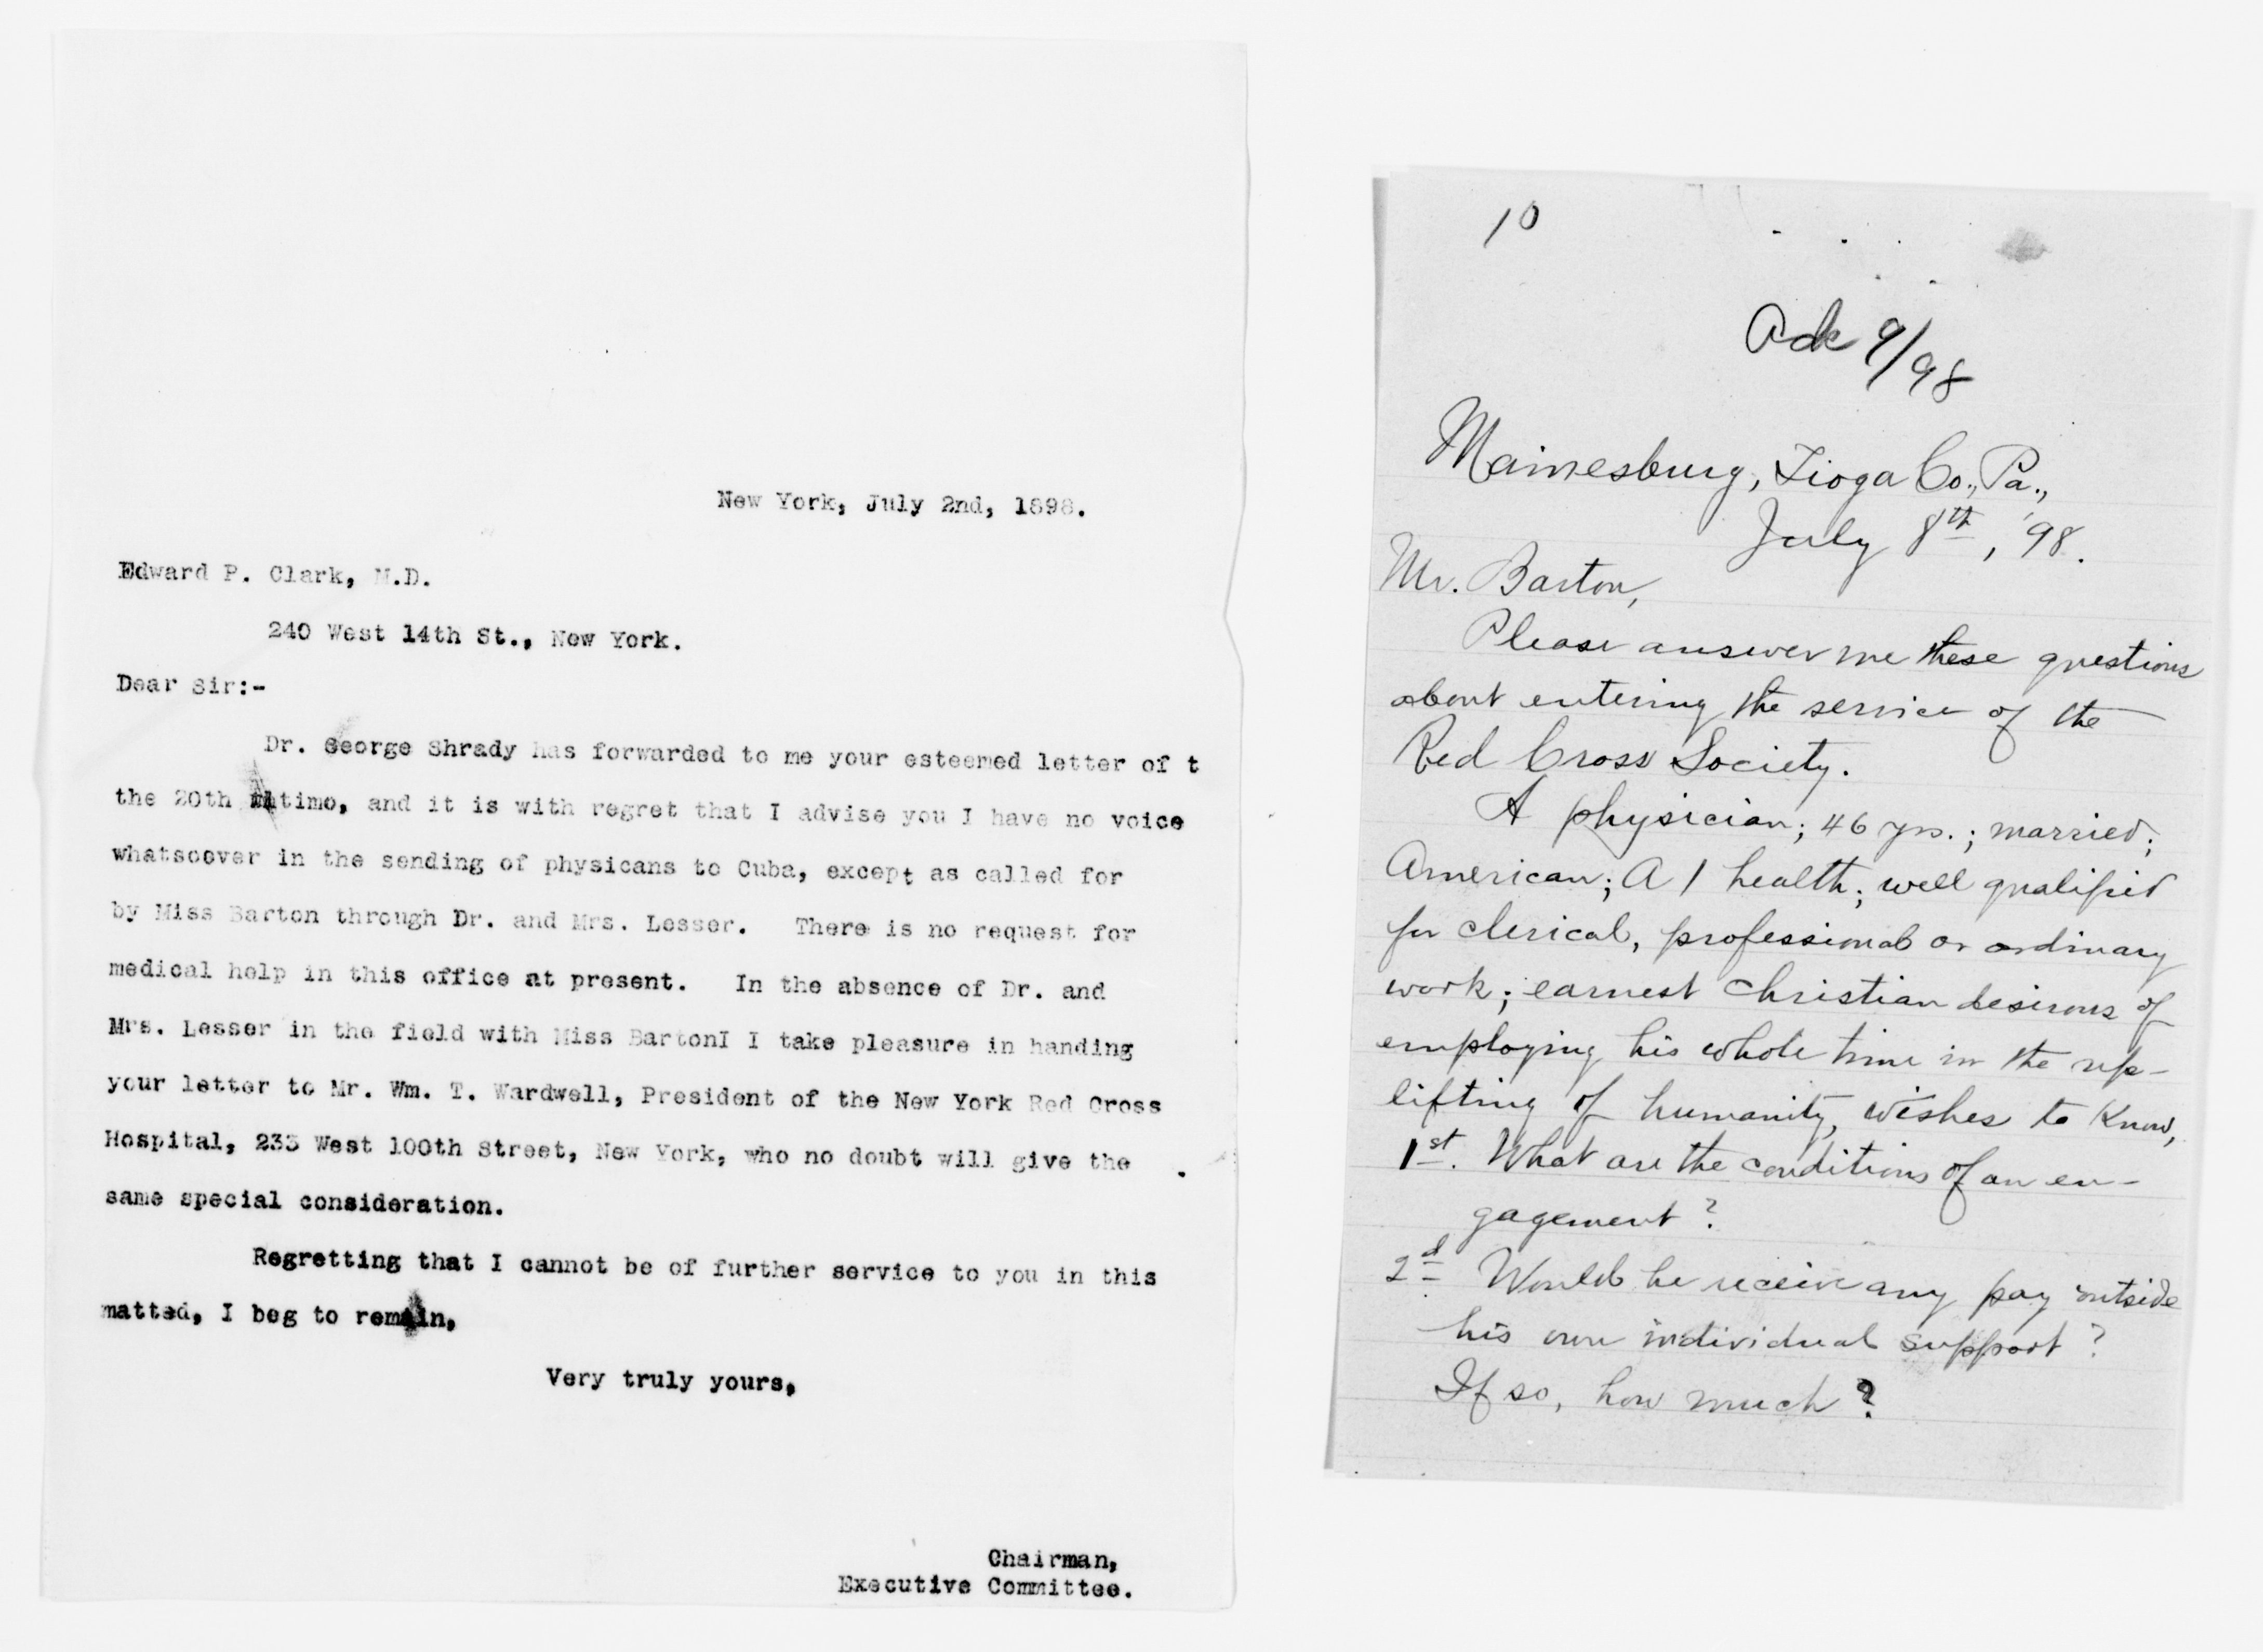 New York, July 2nd, 1898.
Edward P. Clark, M.D.
240 West 14th St., New York.
Dear Sir:-
Dr. George Shrady has forwarded to me your esteemed letter of t
the 20th ultimo, and it is with regret that I advise you I have no voice
whatsoever in the sending of physicans to Cuba, except as called for
by Miss Barton through Dr. and Mrs. Lesser. There is no request for
medical help in this office at present. In the absence of Dr. and
Mrs. Lesser in the field with Miss BartonI I take pleasure in handing
your letter to Mr. Wm. T. Wardwell, President of the New York Red Cross
Hospital, 233 West 100th Street, New York, who no doubt will give the
same special consideration.
Regretting that I cannot be of further service to you in this
matted, I beg to remain,
Very truly yours,
Chairman,
Executive Committee.
10
Ack 9/98
Mainesburg, Tioga Co., Pa.,
July 8th, '98.
Mr. Barton,
Please answer me these questions
about entering the service of the
Red Cross Society.
A physician; 46 yrs.; married;
American; A 1 health; well qualified
for clerical, professional or ordinary
work; earnest Christian desirous of
employing his whole time in the up-
lifting of humanity, wishes to know,
1st. What are the conditions of an en-
gagement?
2d Would he receive any pay outside
his own individual support?
If so, how much?